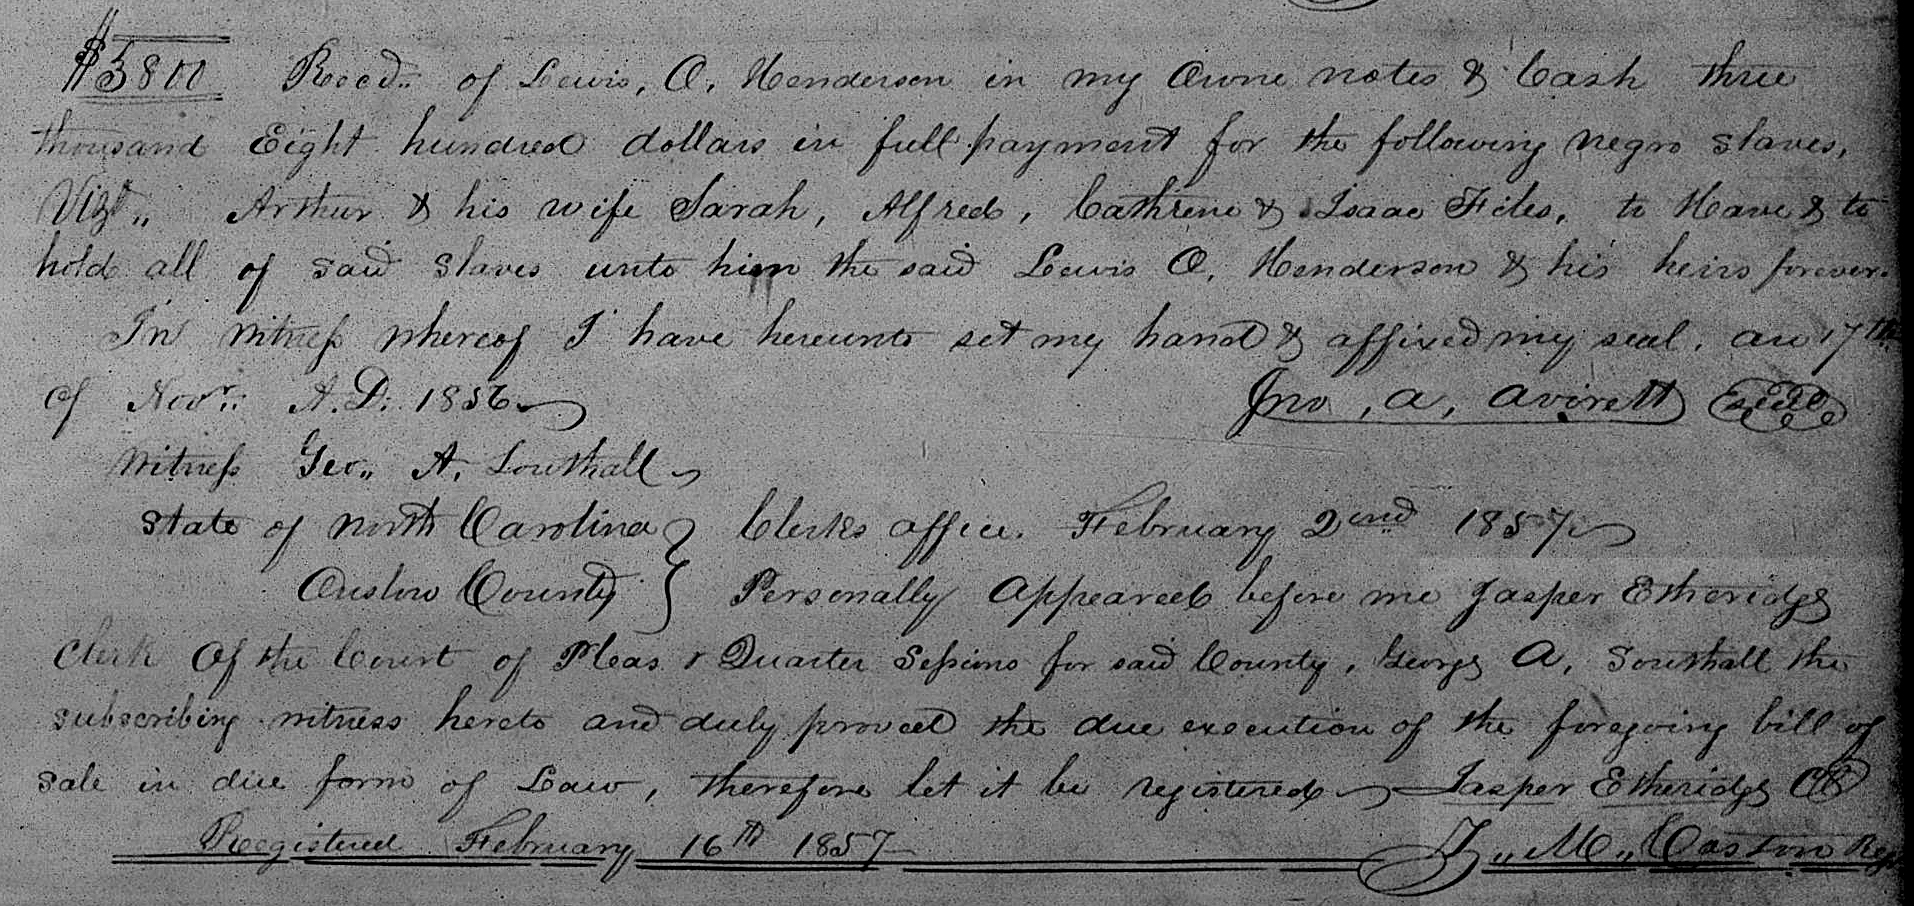 $3800 Recd. of Lewis, O, Henderson in my Owne notes & Cash three
thousand Eight hundred dollars in full payment for the following negro slaves,
Vizt,, Arthur & his wife Sarah, Alfred, Cathrine & Isaac Files, to Have & to
hold all of said slaves unto him the said Lewis O, Henderson & his heirs forever.
In witness whereof I have hereunto set my hand & affixed my seal, 17th
of Novr: A.D. 1856
Jno, A, Avirett Seal
Witness Geo,, A, Southall
State of North Carolina } Clerks office. February 2nd 1857
Onslow County } Personally Appeared before me Jasper Etheridge
Clerk Of the Court of Pleas & Quarter Sessions for said County, George A, Southall the
subscribing witness hereto and duly proved the due execution of the foregoing bill of
sale in due form of Law, therefore let it be registered Jasper Etheridge Clk
Registered February 16th 1857 M,, Easton Reg